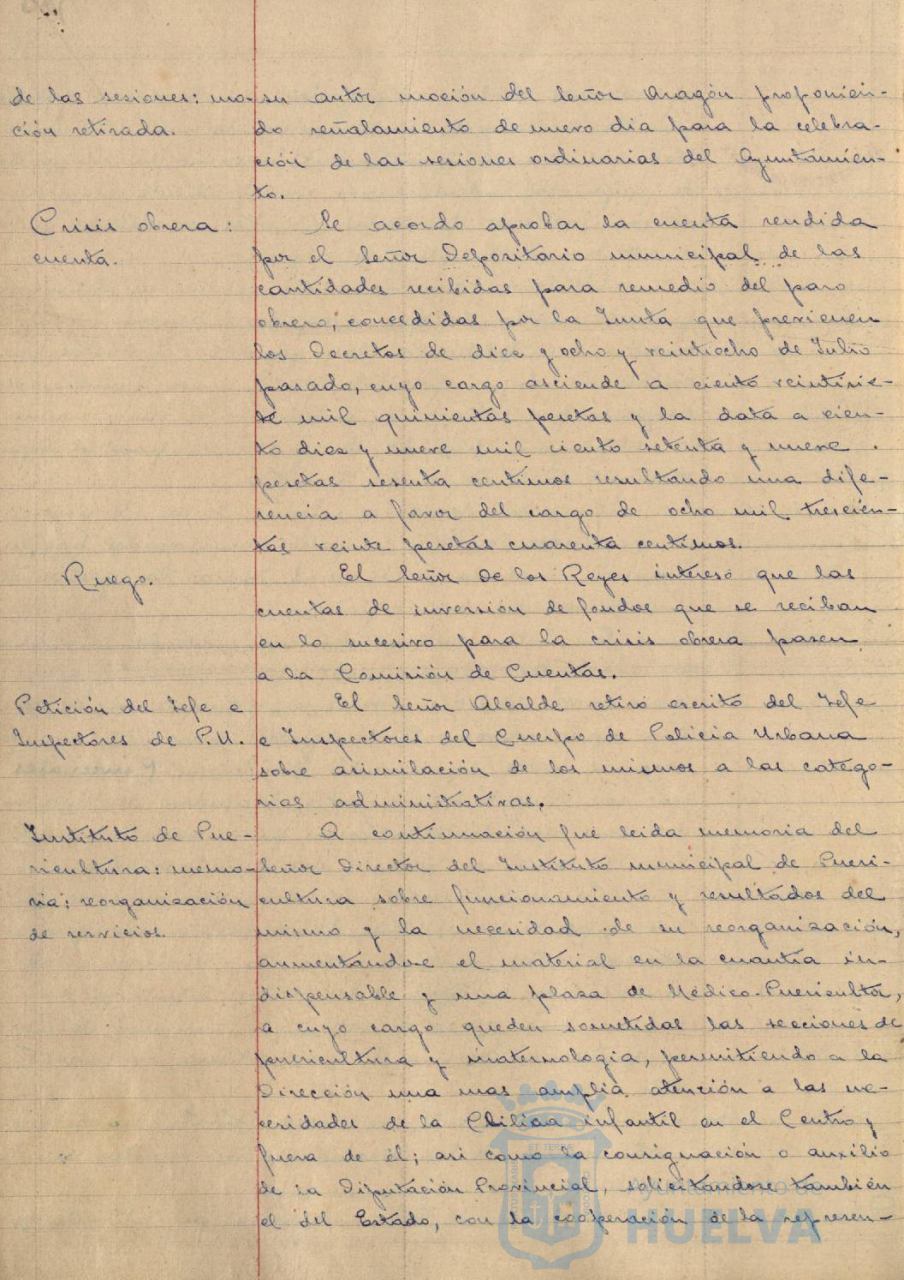 de las sesiones: mo-
ción retirada.
su autor moción del Señor Aragón proponien-
do señalamiento de nuevo dia para la celebra-
ción de las sesiones ordinarias del Ayuntamien-
to.
Crisis obrera:
cuenta.
Se acordo aprobar la cuenta rendida
por el Señor Depositario municipal de las
cantidades recibidas para remedio del paro
obrero, concedidas por la Junta que previenen
los Decretos de diez y ocho y veintiocho de Julio
pasado, cuyo cargo asciende a ciento veintisie-
te mil quinientas pesetas y la data a cien-
to diez y nueve mil ciento setenta y nueve
pesetas sesenta centimos resultando una dife-
rencia a favor del cargo de ocho mil trescien-
tas veinte pesetas cuarenta centimos.
Ruego.
El Señor De los Reyes interesó que las
cuentas de inversión de fondos que se reciban
en lo sucesivo para la crisis obrera pasen
a la Comisión de Cuentas.
Petición del Jefe e
Inspectores de P.U.
El Señor Alcalde retiró escrito del Jefe
e Inspectores del Cuerpo de Policia Urbana
sobre asimilación de los mismos a las catego-
rias administrativas.
Instituto de Pue-
ricultura: memo-
ria; reorganización
de servicios.
A continuación fue leida memoria del
Señor Director del Instituto municipal de Pueri-
cultura sobre funcionamiento y resultados del
mismo y la necesidad de su reorganización,
aumentandose el material en la cuantia in-
dispensable y una plaza de Médico-Puericultor,
a cuyo cargo queden sometidas las secciones de
puericultura y maternologia, permitiendo a la
Dirección una mas amplia atención a las ne-
cesidades de la Clilica infantil en el Centro y
fuera de él; asi como la consignación o auxilio
de la Diputación Provincial, solicitandose también
el del Estado, con la cooperación de la represen-
HUELVA